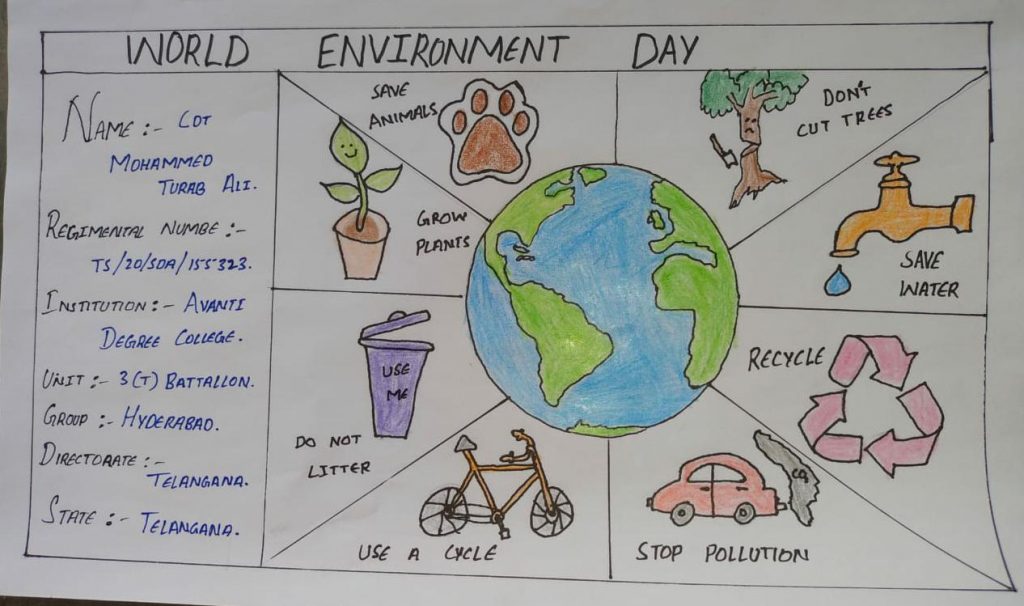 WORLD ENVIRONMENT DAY
NAME :- CDT
MOHAMMED
TURAB ALI.
REGIMENTAL NUMBE :-
TS/20/SDA/155323.
INSTITUTION :- AVANTI
DEGREE COLLEGE.
UNIT :- 3(T) BATTALLON.
GROUP :- HYDERABAD.
DIRECTORATE :-
TELANGANA.
STATE :- TELANGANA.
SAVE
ANIMALS
GROW
PLANTS
DON'T
CUT TREES
SAVE
WATER
USE
ME
DO NOT
LITTER
USE A CYCLE
RECYCLE
CO2
STOP POLLUTION